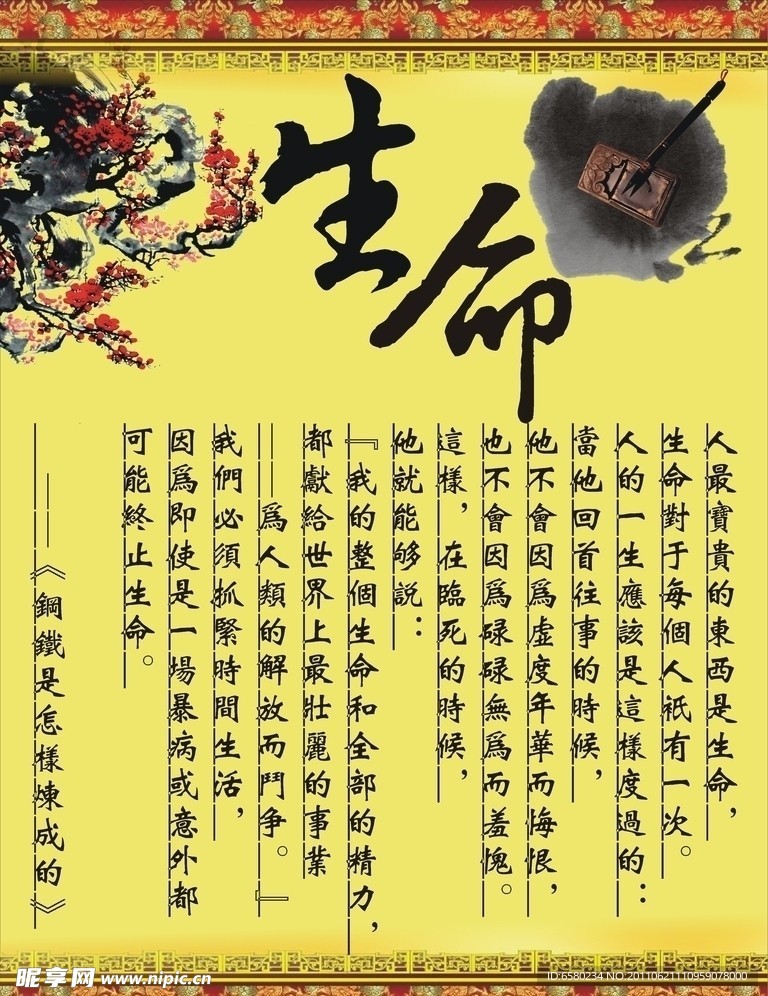 生命
人最寶貴的東西是生命，
生命對于每個人祇有一次。
人的一生應該是這樣度過的：
當他回首往事的時候，
他不會因爲虛度年華而悔恨，
也不會因爲碌碌無爲而羞愧。
這樣，在臨死的時候，
他就能够説：
『我的整個生命和全部的精力，
都獻給世界上最壯麗的事業
——爲人類的解放而鬥争。』
我們必須抓緊時間生活，
因爲即使是一場暴病或意外都
可能終止生命。
——《鋼鐵是怎樣煉成的》
昵享网 www.nipic.cn
ID:6580234 NO:20110621110959078000